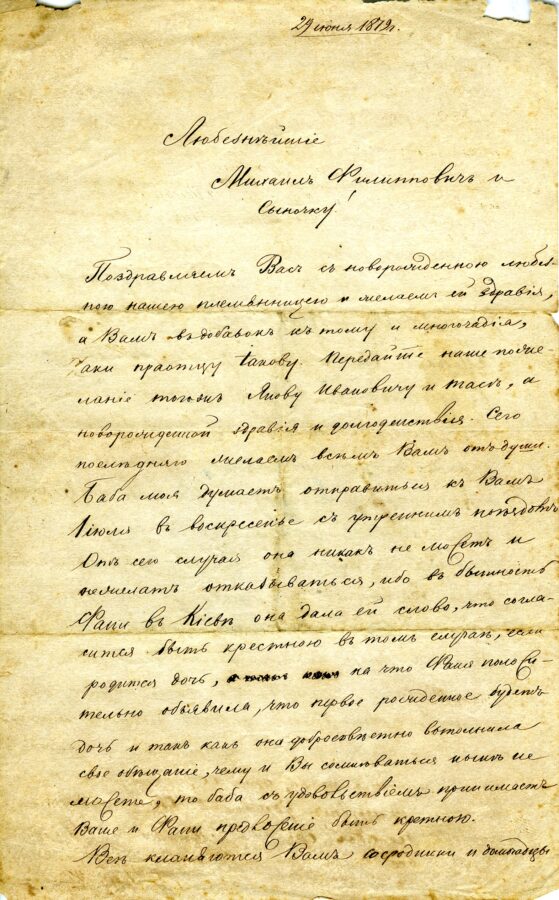 29 июня 1879г.
Любезнѣйшіе
Михаилъ Филипповичъ и
Сыночку!
Поздравляемъ Васъ съ новорожденною любез-
ною нашею племянницею и желаемъ ей здравія,
а Вамъ въ добавокъ къ тому и многочадія,
аки праотцу Іакову. Передайте наше поже
ланіе тогожъ Якову Ивановичу и Тасѣ, а
новорожденной здравія и долгоденствія. Сего
послѣдняго желаемъ всѣмъ Вамъ отъ души.
Баба моя думаетъ отправиться къ Вамъ
1 іюля въ воскресенье съ утреннимъ поѣздомъ
Отъ сего случая она никакъ не можетъ и
нежелатъ отказываться, ибо въ бытность
Фани въ Кіевѣ она дала ей слово, что согла-
сится быть крестною въ томъ случаѣ, если
родится дочь, на что Фаня положи-
тельно объявила, что первое рожденное будетъ
дочь и такъ какъ она добросовѣстно выполнила
свое обѣщаніе, чему и Вы сомнѣваться никакъ не
можете, то баба съ удовольствіемъ принимаетъ
Ваше и Фани предложеніе быть крестною.
Всѣ кланяются Вамъ сосродники и домочадцы